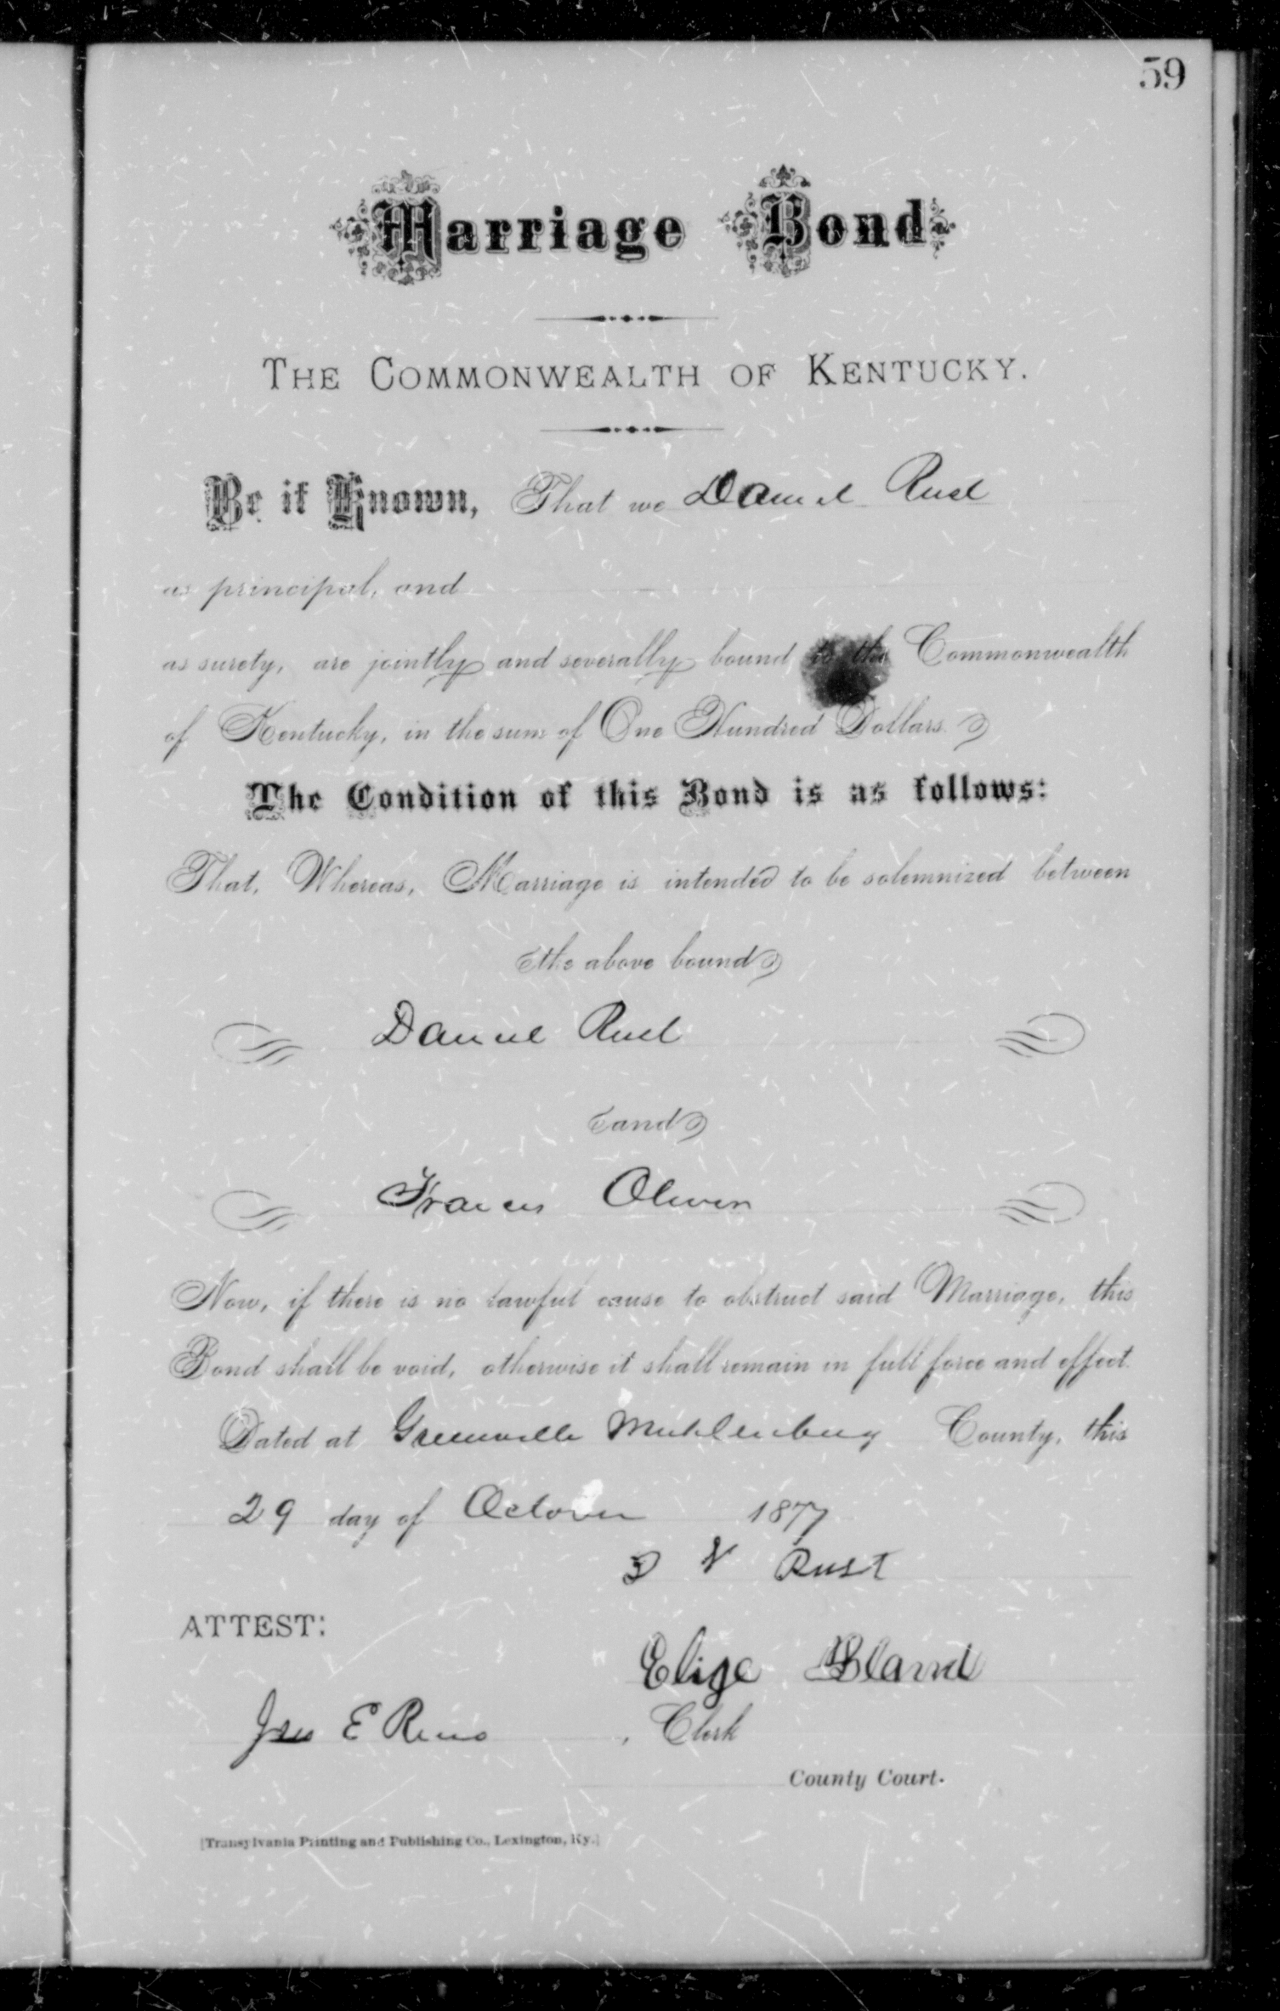 59
Marriage Bond
THE COMMONWEALTH OF KENTUCKY.
Be it Known, That we Daniel Rust
as principal, and
as surety, are jointly and severally bound to the Commonwealth
of Kentucky, in the sum of One Hundred Dollars.
The Condition of this Bond is as follows:
That, Whereas, Marriage is intended to be solemnized between
the above bound
Daniel Rust
and
Frances Oliver
Now, if there is no lawful cause to obstruct said Marriage, this
Bond shall be void, otherwise it shall remain in full force and effect.
Dated at Greenville Muhlenburg County, this
29 day of October 1877
Rust
ATTEST:
Elige Bland
Jno E Reno, Clerk
County Court.
[Transylvania Printing and Publishing Co., Lexington, Ky.]